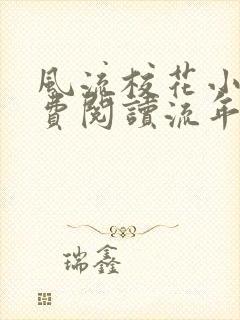 風流校花小
費閱讀流年
瑞鑫